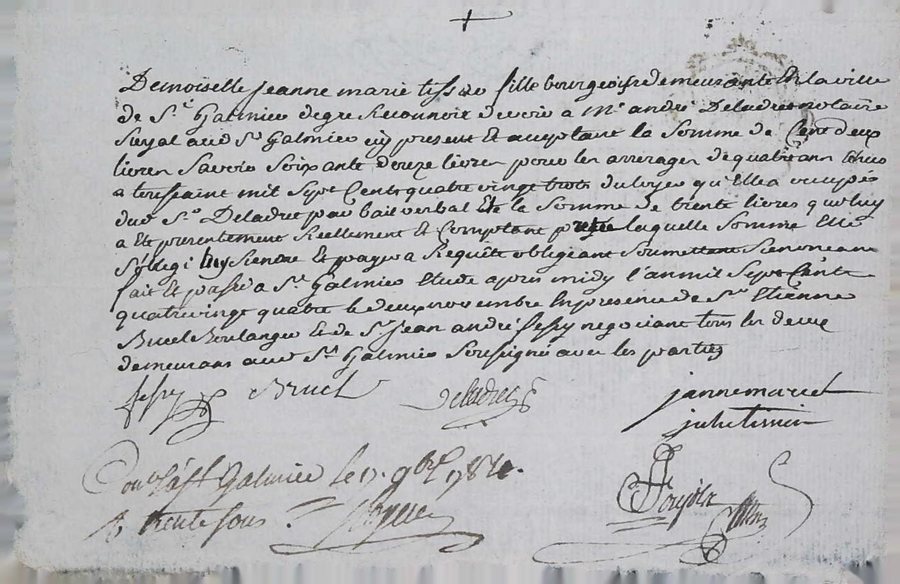 Demoiselle jeanne marie tissot fille bourgeoise demeurante En la ville
de St Galmier de gre Reconnoit devoir a Mr andré Deladret notaire
Royal aud St Galmier icy present Et acceptant la Somme de Cent deux
livres Savoir Soixante douze livres pour les arrerages de quatre ans
a la toussaint mil Sept Cents quatre vingt trois du loyer qu'Elle a occupés
dud Sr Deladret par bail verbal Et la Somme de trente livres que luy
a Eté presentement Reellement Et Comptant pretée laquelle Somme Elle
S'oblige luy Rendre Et payer a Requête obligeant Soumettant Renonceant
fait Et passé a St Galmier Etude après midy l'an mil Sept Cents
quatre vingt quatre le deux novembre En presence de Sr Etienne
Bruel Boulanger Et de Sr Jean andré fessy negociant tous les deux
demeurans aud St Galmier Soussigné avec les parties
fessy Bruel Deladret jannemarie
Con. à St Galmier le 17 9bre 1784.
R trente sous